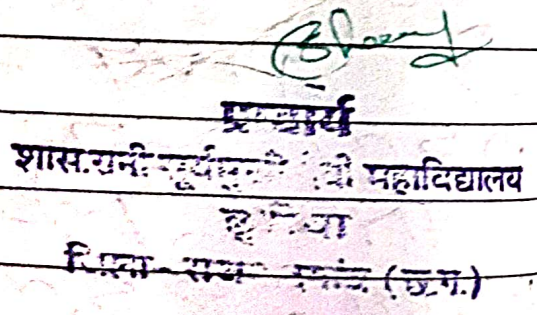 प्राचार्य
शास.रानी सूर्यमुखी देवी महाविद्यालय
छुरिया
जिला - राजनांदगांव (छ.ग.)